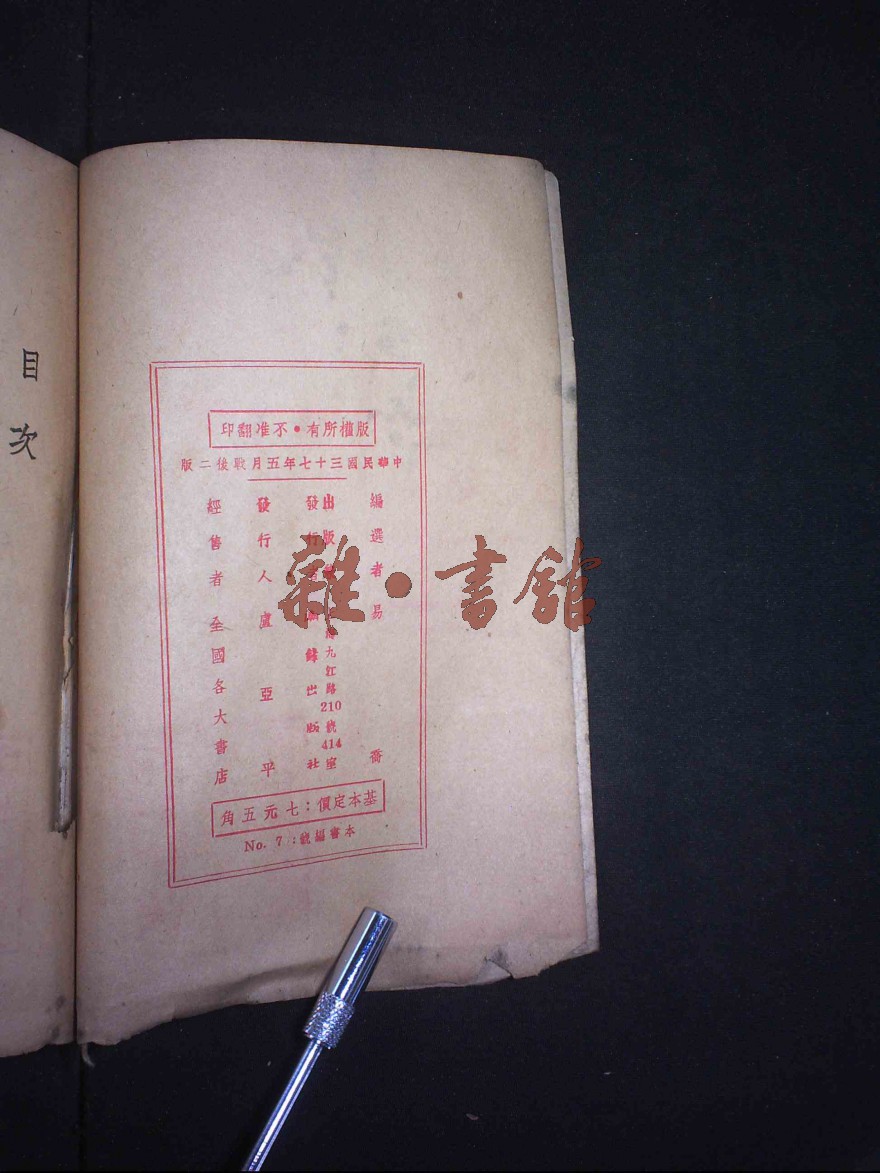 版權所有•不准翻印
中華民國三十七年五月戰後二版
編選者 易
出版
海九江路210號414室
發行
出版社
發行人 盧亞平
經售者 全國各大書店
基本定價:七元五角
本書編號:No. 7
目次
雜·書館